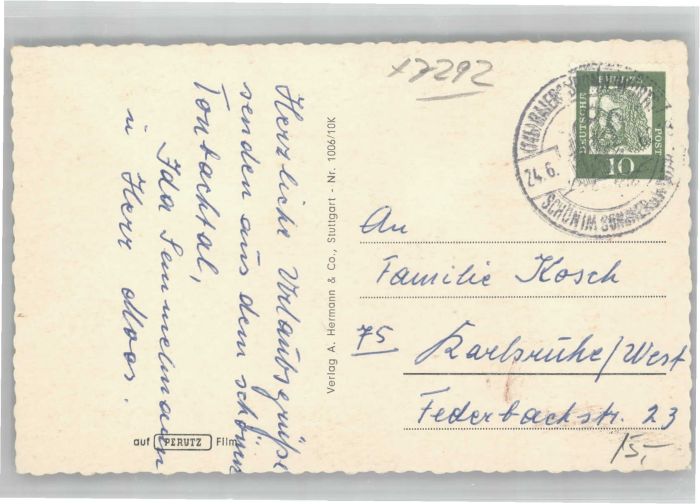 x7292
Herzliche Urlaubsgrüße
senden aus dem schönen
Tonbachtal,
Ida Semmelmann
u Herr Moos.
Verlag A. Hermann & Co., Stuttgart - Nr. 1006/10K
auf PERUTZ Film
DEUTSCHE
POST
10
24.6.
SCHÖN IM SOMMER
An
Familie Kosch
75 Karlsruhe/West
Federbachstr. 23
15,-